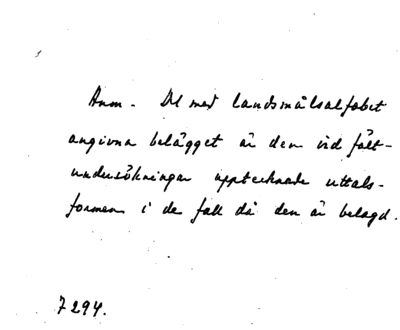 Anm. Det med landsmålsalfabet
angivna belägget är den vid fält-
undersökningar upptecknade uttals-
formen i de fall då den är belagd.
7294.